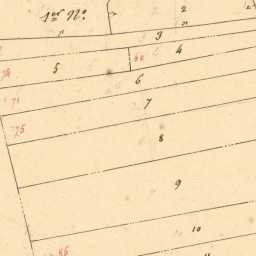 1er No.
2
3
4
5
6
7
8
9
10
11
71
75